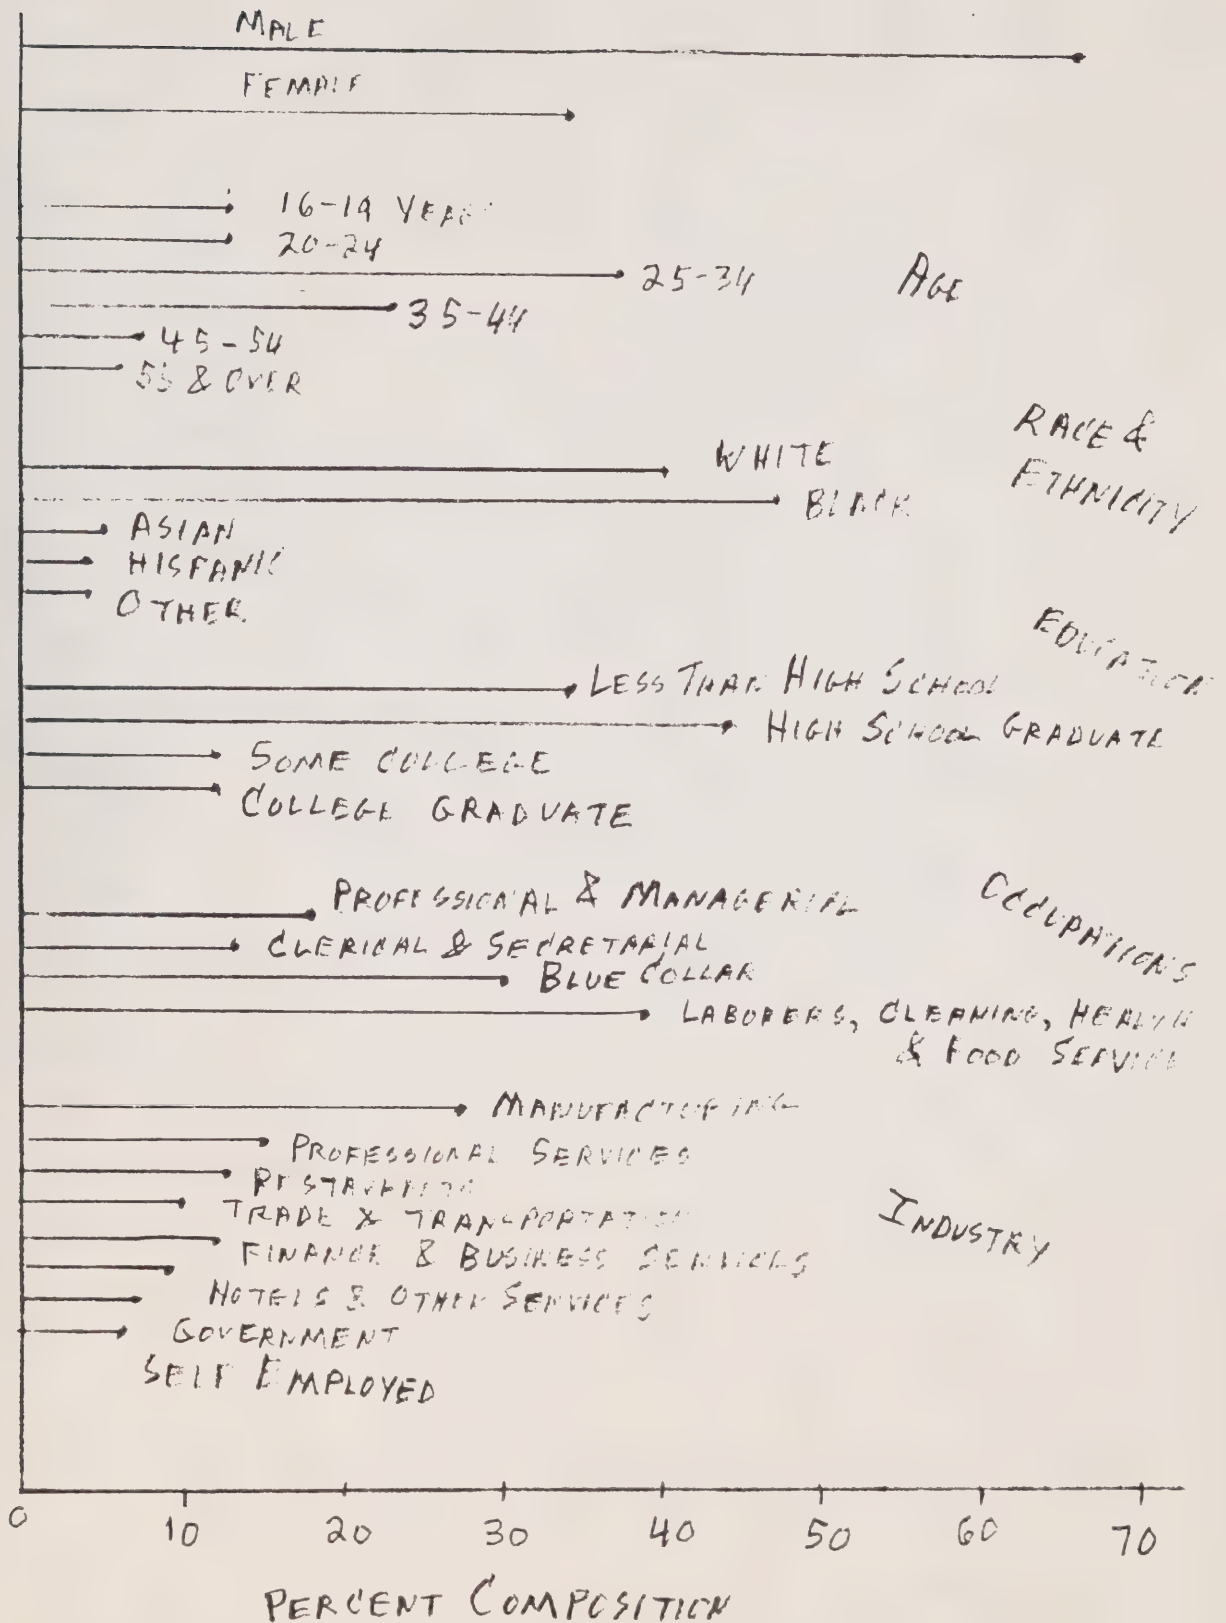 MALE
FEMALE
16-19 YEARS
20-24
25-34
AGE
35-44
45-54
55 & OVER
RACE &
ETHNICITY
WHITE
BLACK
ASIAN
HISPANIC
OTHER
EDUCATION
LESS THAN HIGH SCHOOL
HIGH SCHOOL GRADUATE
SOME COLLEGE
COLLEGE GRADUATE
OCCUPATIONS
PROFESSIONAL & MANAGERIAL
CLERICAL & SECRETARIAL
BLUE COLLAR
LABORERS, CLEANING, HEALTH
& FOOD SERVICE
MANUFACTURING
PROFESSIONAL SERVICES
RESTAURANTS
TRADE & TRANSPORTATION
INDUSTRY
FINANCE & BUSINESS SERVICES
HOTELS & OTHER SERVICES
GOVERNMENT
SELF EMPLOYED
0 10 20 30 40 50 60 70
PERCENT COMPOSITION